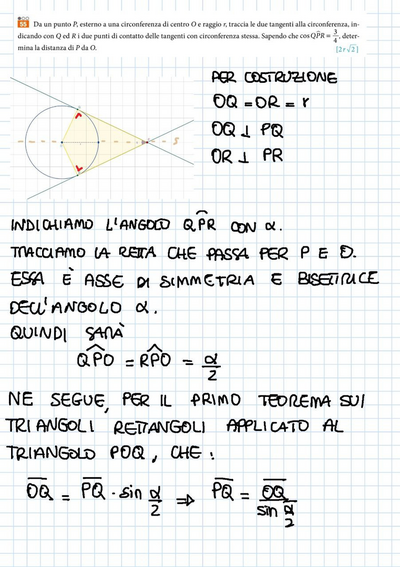 55 Da un punto P, esterno a una circonferenza di centro O e raggio r, traccia le due tangenti alla circonferenza, in-
dicando con Q ed R i due punti di contatto delle tangenti con circonferenza stessa. Sapendo che cos QP̂R = 3/4, deter-
mina la distanza di P da O. [2r√2]
PER COSTRUZIONE
OQ = OR = r
OQ ⊥ PQ
OR ⊥ PR
s
INDICHIAMO L'ANGOLO QP̂R CON α.
TRACCIAMO LA RETTA CHE PASSA PER P E O.
ESSA È ASSE DI SIMMETRIA E BISETTRICE
DELL'ANGOLO α.
QUINDI SARÀ
QP̂O = RP̂O = α/2
NE SEGUE, PER IL PRIMO TEOREMA SUI
TRIANGOLI RETTANGOLI APPLICATO AL
TRIANGOLO POQ, CHE:
O̅Q̅ = P̅Q̅ · sin α/2 ⇒ P̅Q̅ = O̅Q̅ / sin α/2